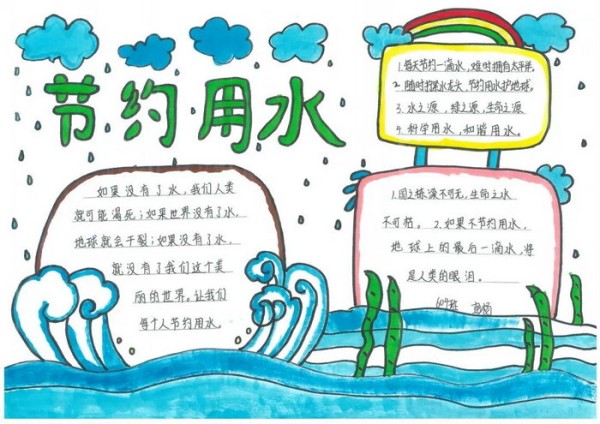 节约用水
如果没有了水,我们人类
就可能渴死;如果世界没有了水,
地球就会干裂;如果没有了水,
就没有了我们这个美
丽的世界。让我们
每个人节约用水。
1.每天节约一滴水,难时拥有太平洋。
2.随时打紧水龙头 节约用水护地球。
3.水之源,绿之源,生命之源
4.科学用水,和谐用水。
1.国之栋梁不可无,生命之水
不可枯。2.如果不节约用水,
地球上的最后一滴水,将
是人类的眼泪。